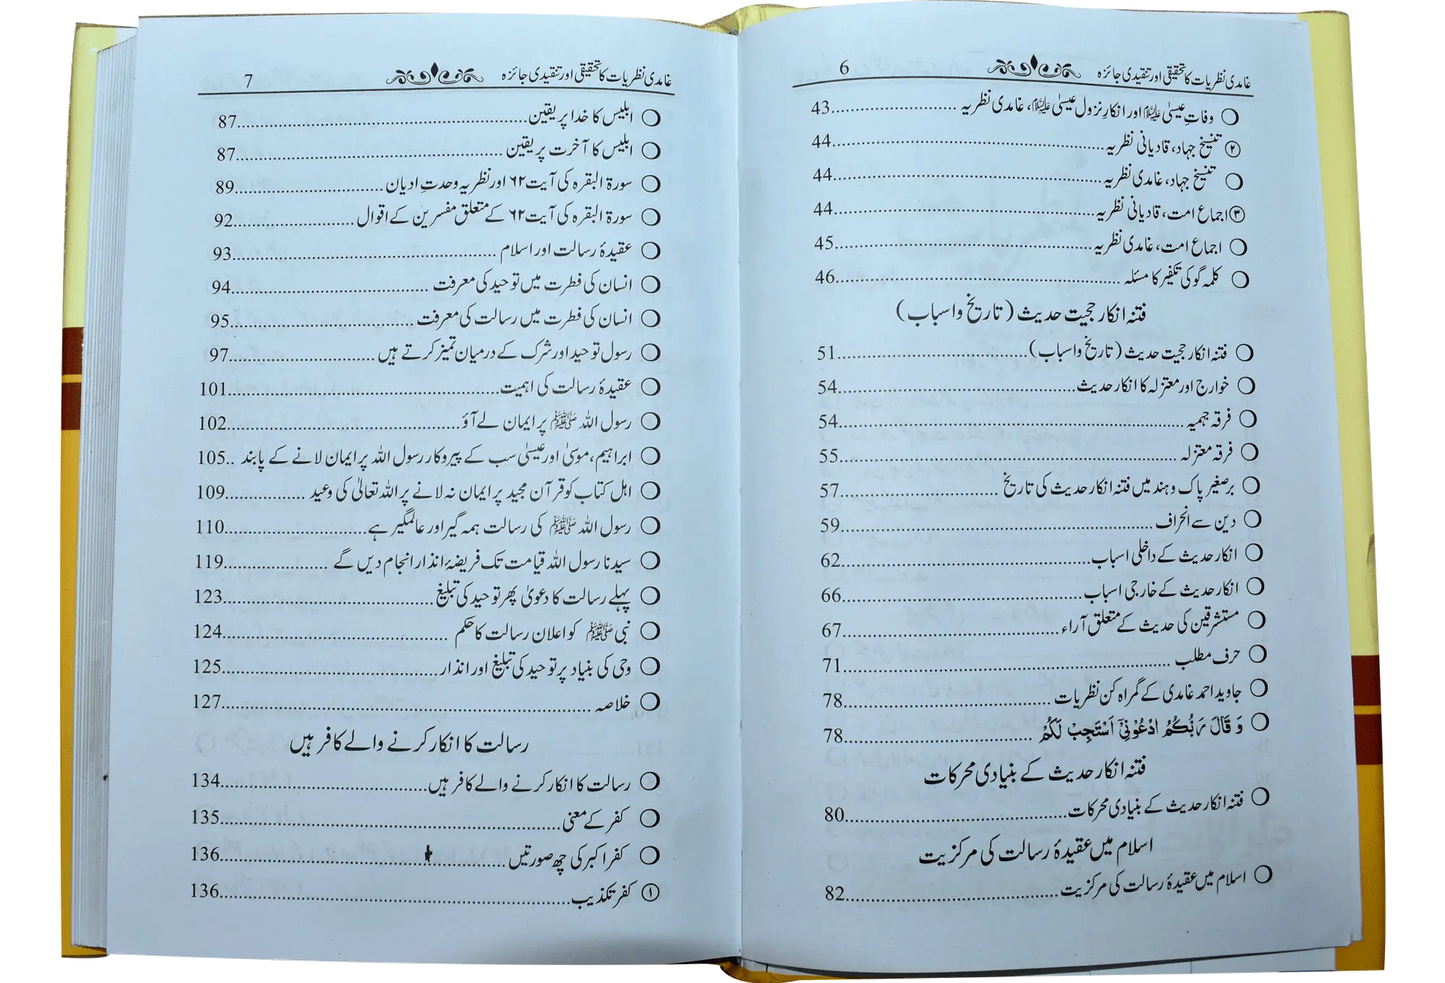 غامدی نظریات کا تحقیقی اور تنقیدی جائزہ 6
وفاتِ عیسیٰ ﷺ اور انکارِ نزول عیسیٰ ﷺ، غامدی نظریہ 43
② تنسیخ جہاد، قادیانی نظریہ 44
تنسیخ جہاد، غامدی نظریہ 44
③ اجماع امت، قادیانی نظریہ 44
اجماع امت، غامدی نظریہ 45
کلمہ گو کی تکفیر کا مسئلہ 46
فتنہ انکار حجیت حدیث (تاریخ و اسباب)
فتنہ انکار حجیت حدیث (تاریخ و اسباب) 51
خوارج اور معتزلہ کا انکار حدیث 54
فرقہ جہمیہ 54
فرقہ معتزلہ 55
برصغیر پاک و ہند میں فتنہ انکار حدیث کی تاریخ 57
دین سے انحراف 59
انکار حدیث کے داخلی اسباب 62
انکار حدیث کے خارجی اسباب 66
مستشرقین کی حدیث کے متعلق آراء 67
حرف مطلب 71
جاوید احمد غامدی کے گمراہ کن نظریات 78
وَ قَالَ رَبُّكُمُ ادْعُوْنِيْٓ اَسْتَجِبْ لَكُمْ 78
فتنہ انکار حدیث کے بنیادی محرکات
فتنہ انکار حدیث کے بنیادی محرکات 80
اسلام میں عقیدۂ رسالت کی مرکزیت
اسلام میں عقیدۂ رسالت کی مرکزیت 82
غامدی نظریات کا تحقیقی اور تنقیدی جائزہ 7
ابلیس کا خدا پر یقین 87
ابلیس کا آخرت پر یقین 87
سورۃ البقرہ کی آیت ۶۲ اور نظریہ وحدتِ ادیان 89
سورۃ البقرہ کی آیت ۶۲ کے متعلق مفسرین کے اقوال 92
عقیدۂ رسالت اور اسلام 93
انسان کی فطرت میں توحید کی معرفت 94
انسان کی فطرت میں رسالت کی معرفت 95
رسول توحید اور شرک کے درمیان تمیز کرتے ہیں 97
عقیدۂ رسالت کی اہمیت 101
رسول اللہ ﷺ پر ایمان لے آؤ 102
ابراہیم، موسیٰ اور عیسیٰ سب کے پیروکار رسول اللہ پر ایمان لانے کے پابند 105
اہل کتاب کو قرآن مجید پر ایمان نہ لانے پر اللہ تعالیٰ کی وعید 109
رسول اللہ ﷺ کی رسالت ہمہ گیر اور عالمگیر ہے 110
سیدنا رسول اللہ قیامت تک فریضۂ انذار انجام دیں گے 119
پہلے رسالت کا دعویٰ پھر توحید کی تبلیغ 123
نبی ﷺ کو اعلان رسالت کا حکم 124
وحی کی بنیاد پر توحید کی تبلیغ اور انذار 125
خلاصہ 127
رسالت کا انکار کرنے والے کافر ہیں
رسالت کا انکار کرنے والے کافر ہیں 134
کفر کے معنی 135
کفر اکبر کی چھ صورتیں 136
① کفر تکذیب 136